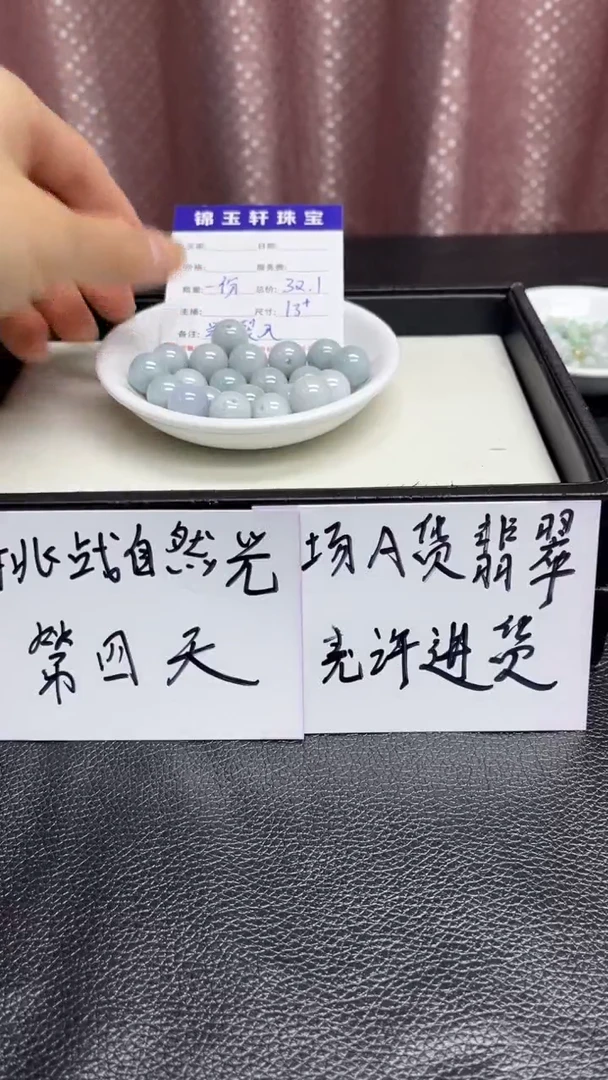 锦玉轩珠宝
日期:
数量: 一份 总价: 32.1
主播: 尺寸: 13+
备注:
挑战自然光 场A货翡翠
第四天 允许进货